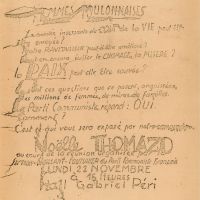 FEMMES MULHOUSIENNES
La hausse du COÛT de la VIE peut-elle
être enrayée?
Notre RAVITAILLEMENT peut-il être amélioré?
Peut-on encore lutter le CHÔMAGE, la MISÈRE?
la PAIX peut elle être sauvée?
Ce sont ces questions que se posent, angoissées,
des millions de femmes, de mères de familles.
Le Parti Communiste répond: OUI.
Comment?
C'est ce qui vous sera exposé par notre camarade
Noëlle THOMAZO
au cours de la réunion organisée
du Parti Communiste Français
LUNDI 22 NOVEMBRE
à 15 HEURES
Hall Gabriel Péri